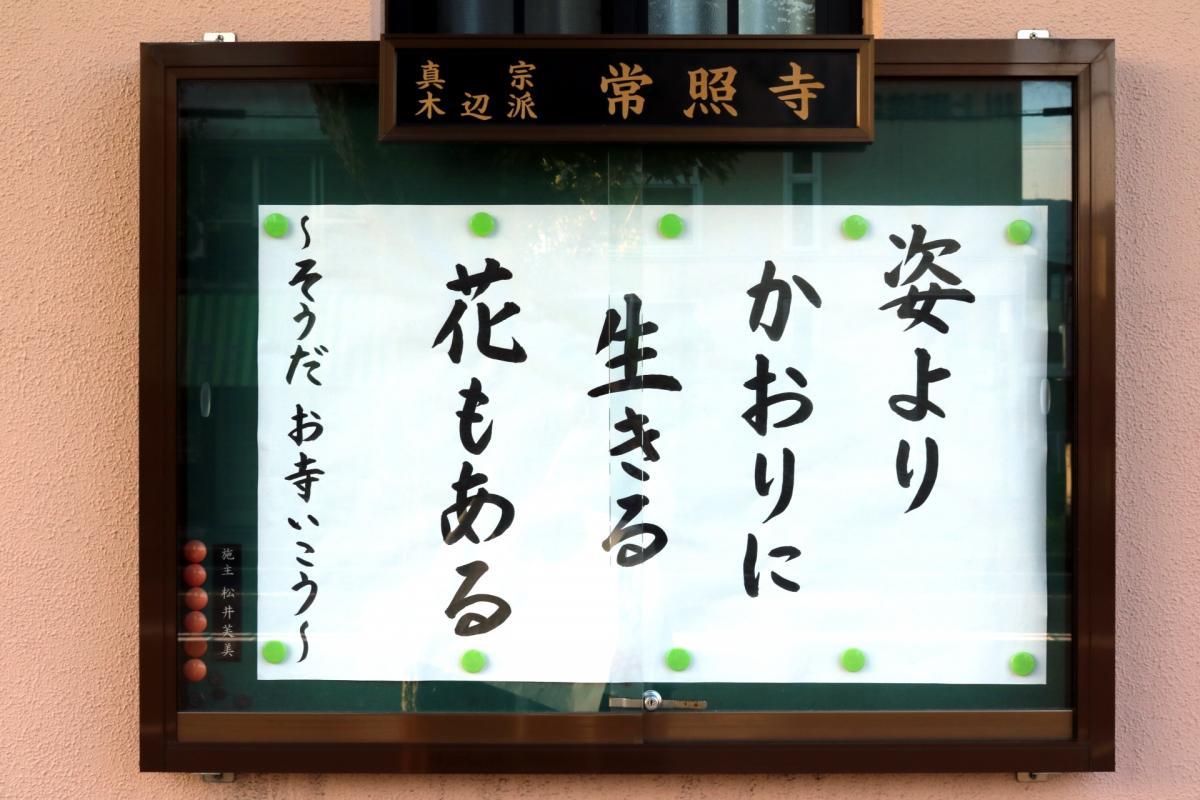 真宗
木辺派
常照寺
姿より
かおりに
生きる
花もある
～そうだ お寺いこう～
施主 松井芙美